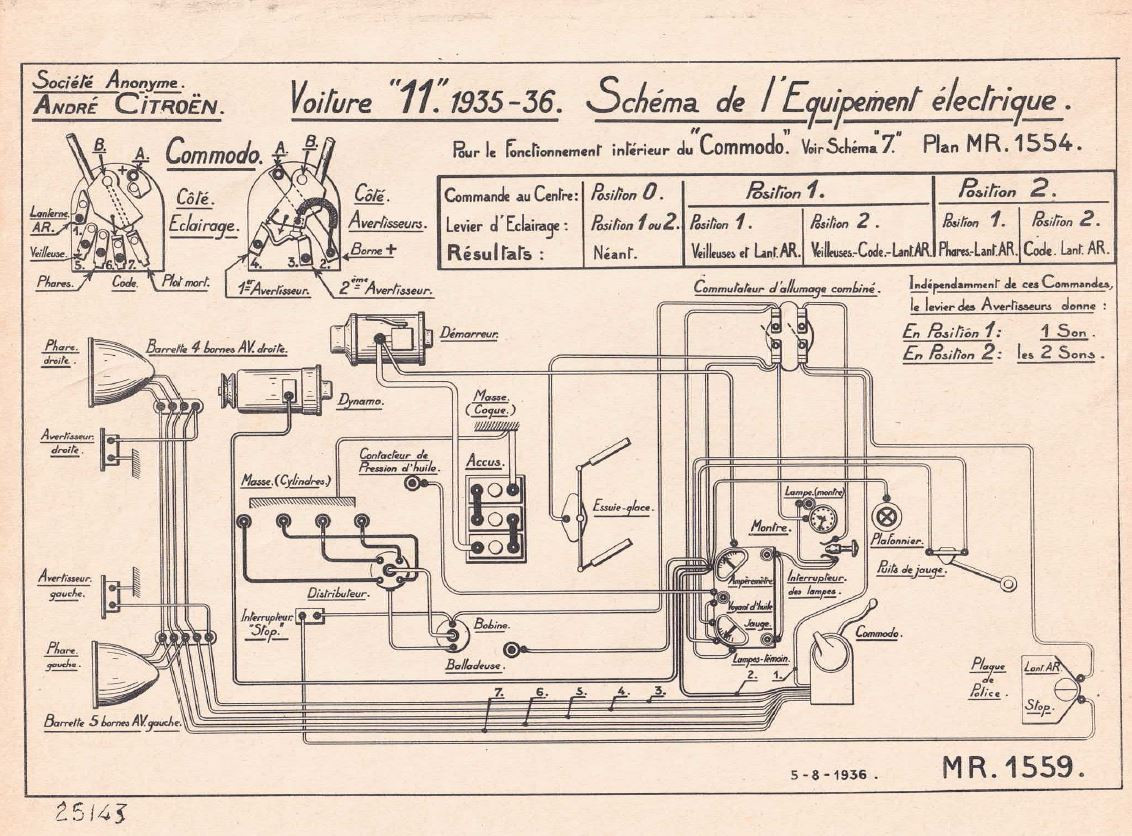 Société Anonyme.
ANDRÉ CITROËN.
Voiture "11". 1935-36. Schéma de l'Equipement électrique.
Pour le Fonctionnement intérieur du "Commodo". Voir Schéma "7." Plan MR. 1554.
Commodo.
B.
A.
+
A.
B.
Côté.
Eclairage.
Côté.
Avertisseurs.
Lanterne.
AR.
1.
Veilleuse.
5.
6.
7.
Phares.
Code.
Plot mort.
4.
3.
2.
Borne +
1er Avertisseur.
2ème Avertisseur.
Commande au Centre: Position 0. Position 1. Position 2.
Levier d'Eclairage: Position 1 ou 2. Position 1. Position 2. Position 1. Position 2.
Résultats: Néant. Veilleuses et Lant. AR. Veilleuses-Code-Lant. AR. Phares-Lant. AR. Code. Lant. AR.
Indépendamment de ces Commandes,
le levier des Avertisseurs donne:
En Position 1: 1 Son.
En Position 2: les 2 Sons.
Commutateur d'allumage combiné.
Phare.
droite.
Barrette 4 bornes AV. droite.
Démarreur.
Dynamo.
Masse.
(Coque.)
Avertisseur.
droite.
Contacteur de
Pression d'huile.
Accus.
Masse. (Cylindres.)
Essuie-glace.
Lampe. (montre)
Montre.
Plafonnier.
Puits de jauge.
Avertisseur
gauche.
Distributeur.
Interrupteur
"Stop."
Bobine.
Balladeuse.
Ampèremètre.
Voyant d'huile
Jauge.
Lampes-témoin.
Interrupteur
des lampes.
Commodo.
Phare
gauche.
Barrette 5 bornes AV. gauche.
7.
6.
5.
4.
3.
2.
1.
Plaque
de
Police.
Lant. AR.
Stop.
5-8-1936.
MR. 1559.
25143